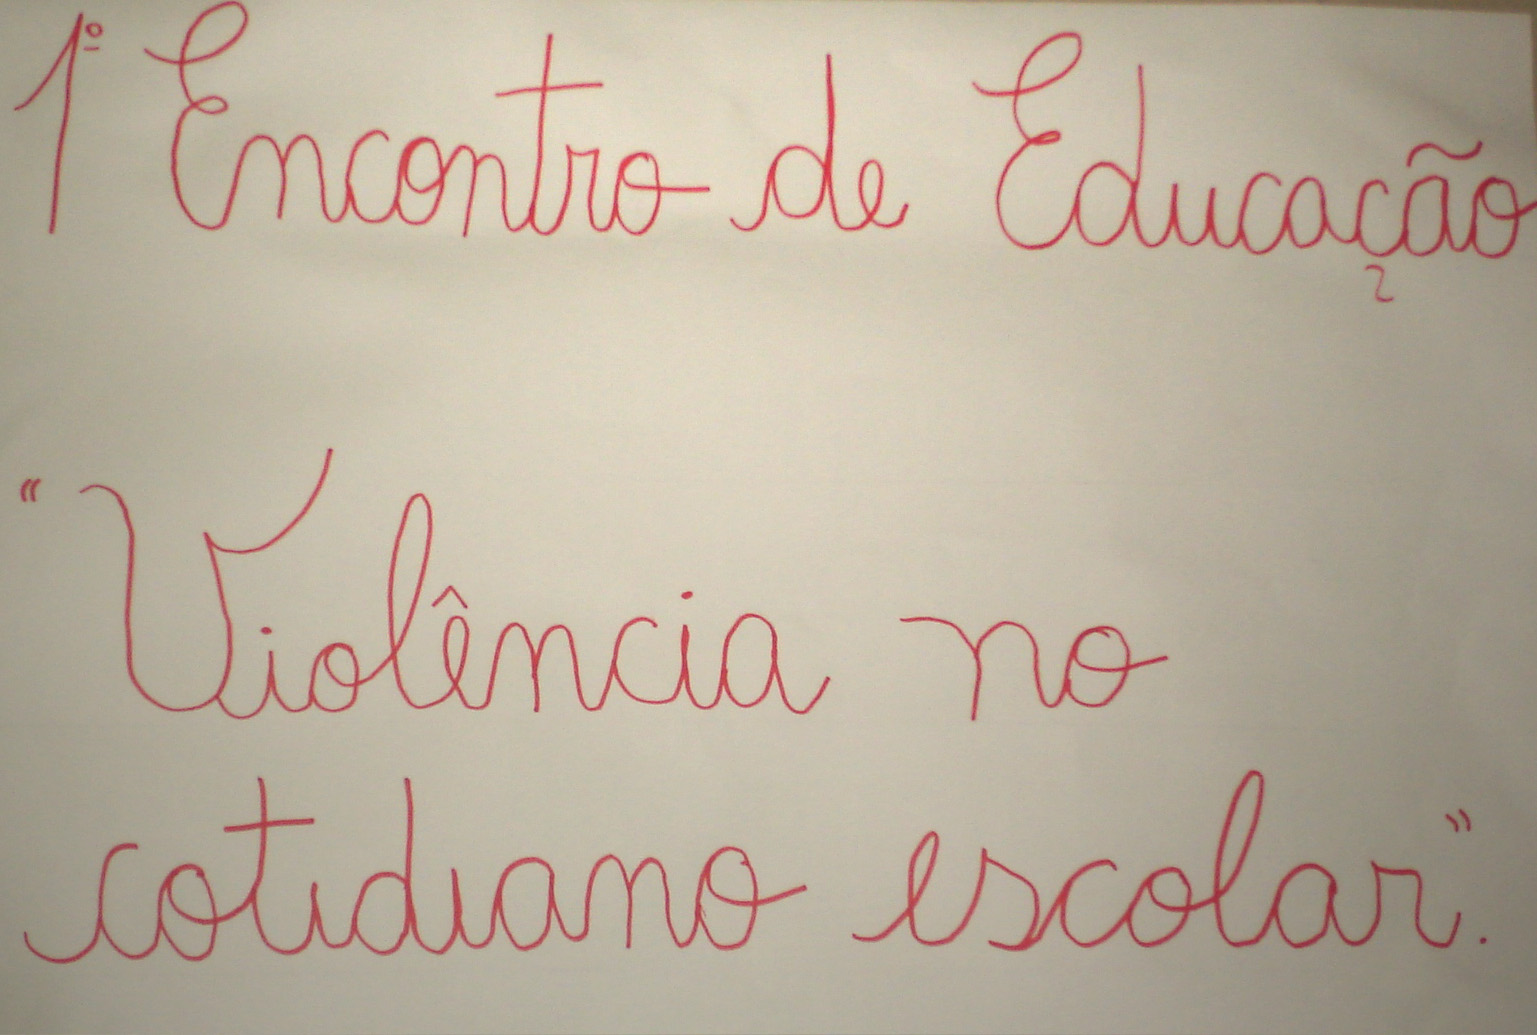 1º Encontro de Educação
"Violência no
cotidiano escolar".